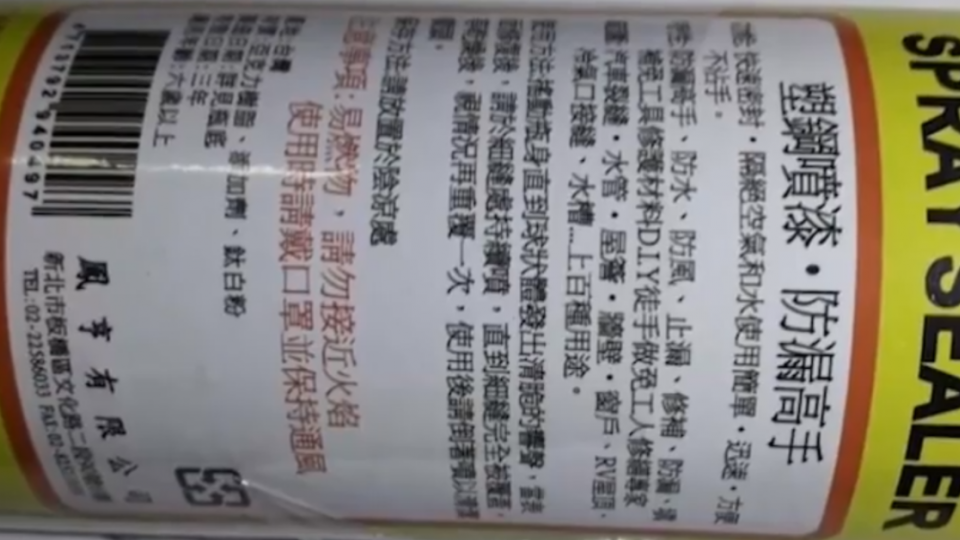 SPRAY SEALER
塑鋼噴漆・防漏高手
功能:快速密封・隔絕空氣和水使用簡單・迅速・方便
不沾手。
特性:防漏高手、防水、防風、止漏、修補、防漏、
補免工具修護材料D.I.Y徒手做免工人修繕專家
汽車裂縫・水管・屋簷・牆壁・窗戶、RV屋頂,
冷氣口接縫、水槽...上百種用途。
使用方法:搖動瓶身直到球狀體發出清脆的響聲,
請於細縫處持續噴,直到細縫完全被覆蓋,
視情況再重覆一次,使用後請倒著噴
保存方法:請放置於陰涼處
注意事項:易燃物,請勿接近火焰
使用時請戴口罩並保持通風
產地:台灣
材質:壓克力樹脂、添加劑、鈦白粉
製造日期:詳見瓶底
有效日期:三年
適用年齡:六歲以上
4 713792 940497
風亨有限公司
新北市板橋區文化路二段
TEL:02-22586033 FAX:02-